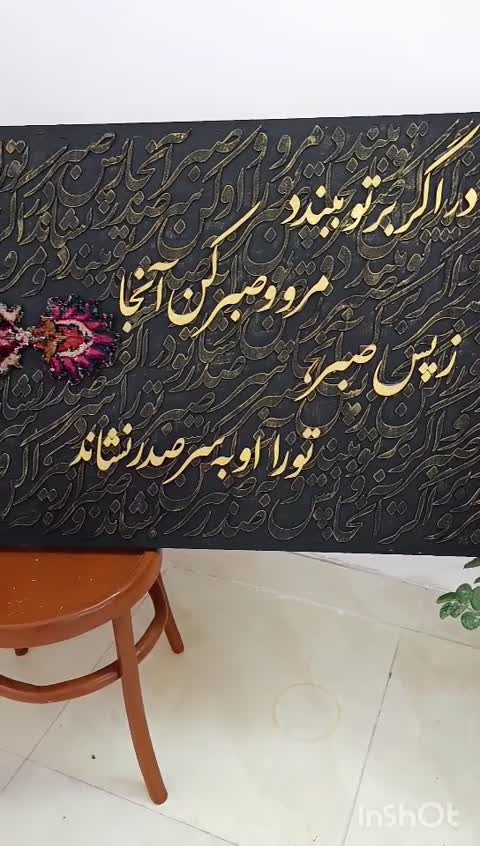 در اگر بر تو ببندد
مرو و صبر کن آنجا
ز پس صبر،
تو را او به سر صدر نشاند
InShOt